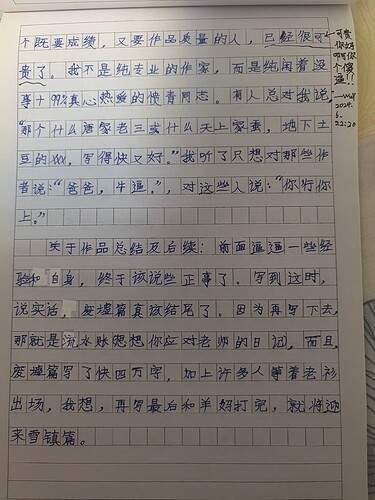 个既要成绩，又要作品质量的人，已经很可
贵了。我不是纯专业的作家，而是纯闲着没
事十99%真心热爱的愤青同志。有人总对我说，
"那个什么唐家老三或什么天上家蚕，地下土
豆的XXX，写得快又好。"我听了只想对那些作
者说："爸爸，牛逼。"，对这些人说："你行你
上。"
关于作品总结及后续：前面逼逼一些经
验和自身，终于该说些正事了。写到这时，
说实话，废墟篇真该结尾了。因为再写下去，
那就是流水账想想你应对老师的日记，而且，
废墟篇写了快四万字，加上许多人等着老衫
出场，我想，再写最后和羊妈打完，就将迎
来雪镇篇。
可爱
2024.
6.
22:20